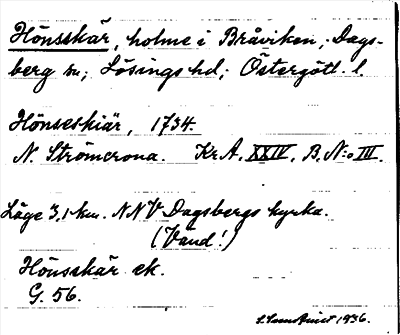 Hönsskär, holme i Bråviken, Dags-
berg sn; Lösings hd; Östergötl. l.
Hönseskiär, 1734.
N. Strömcrona. Kr A. XXIV. B. N:o III.
Läge 3,1 km. NNV Dagsbergs kyrka.
(Vänd!)
Hönsskär ek.
G. 56.
1936.